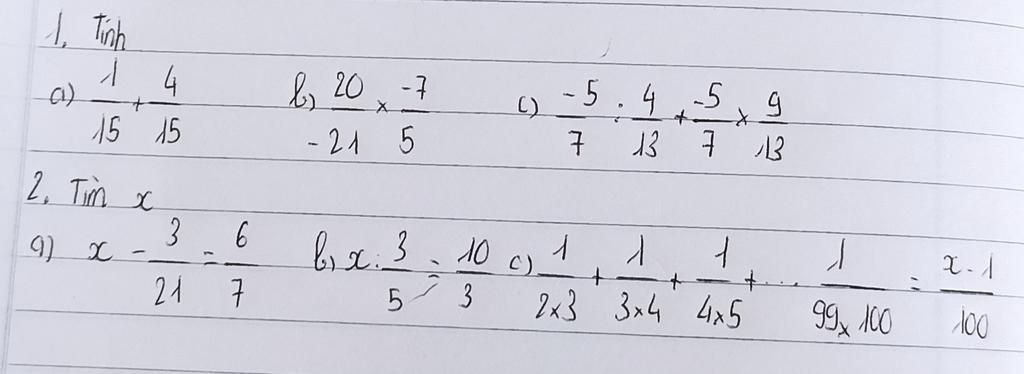 1. Tính
a) 1/15 + 4/15 b) 20/-21 × -7/5 c) -5/7 : 4/13 + -5/7 × 9/13
2. Tìm x
a) x - 3/21 = 6/7 b) x : 3/5 = 10/3 c) 1/2×3 + 1/3×4 + 1/4×5 + ... 1/99×100 = x - 1/100